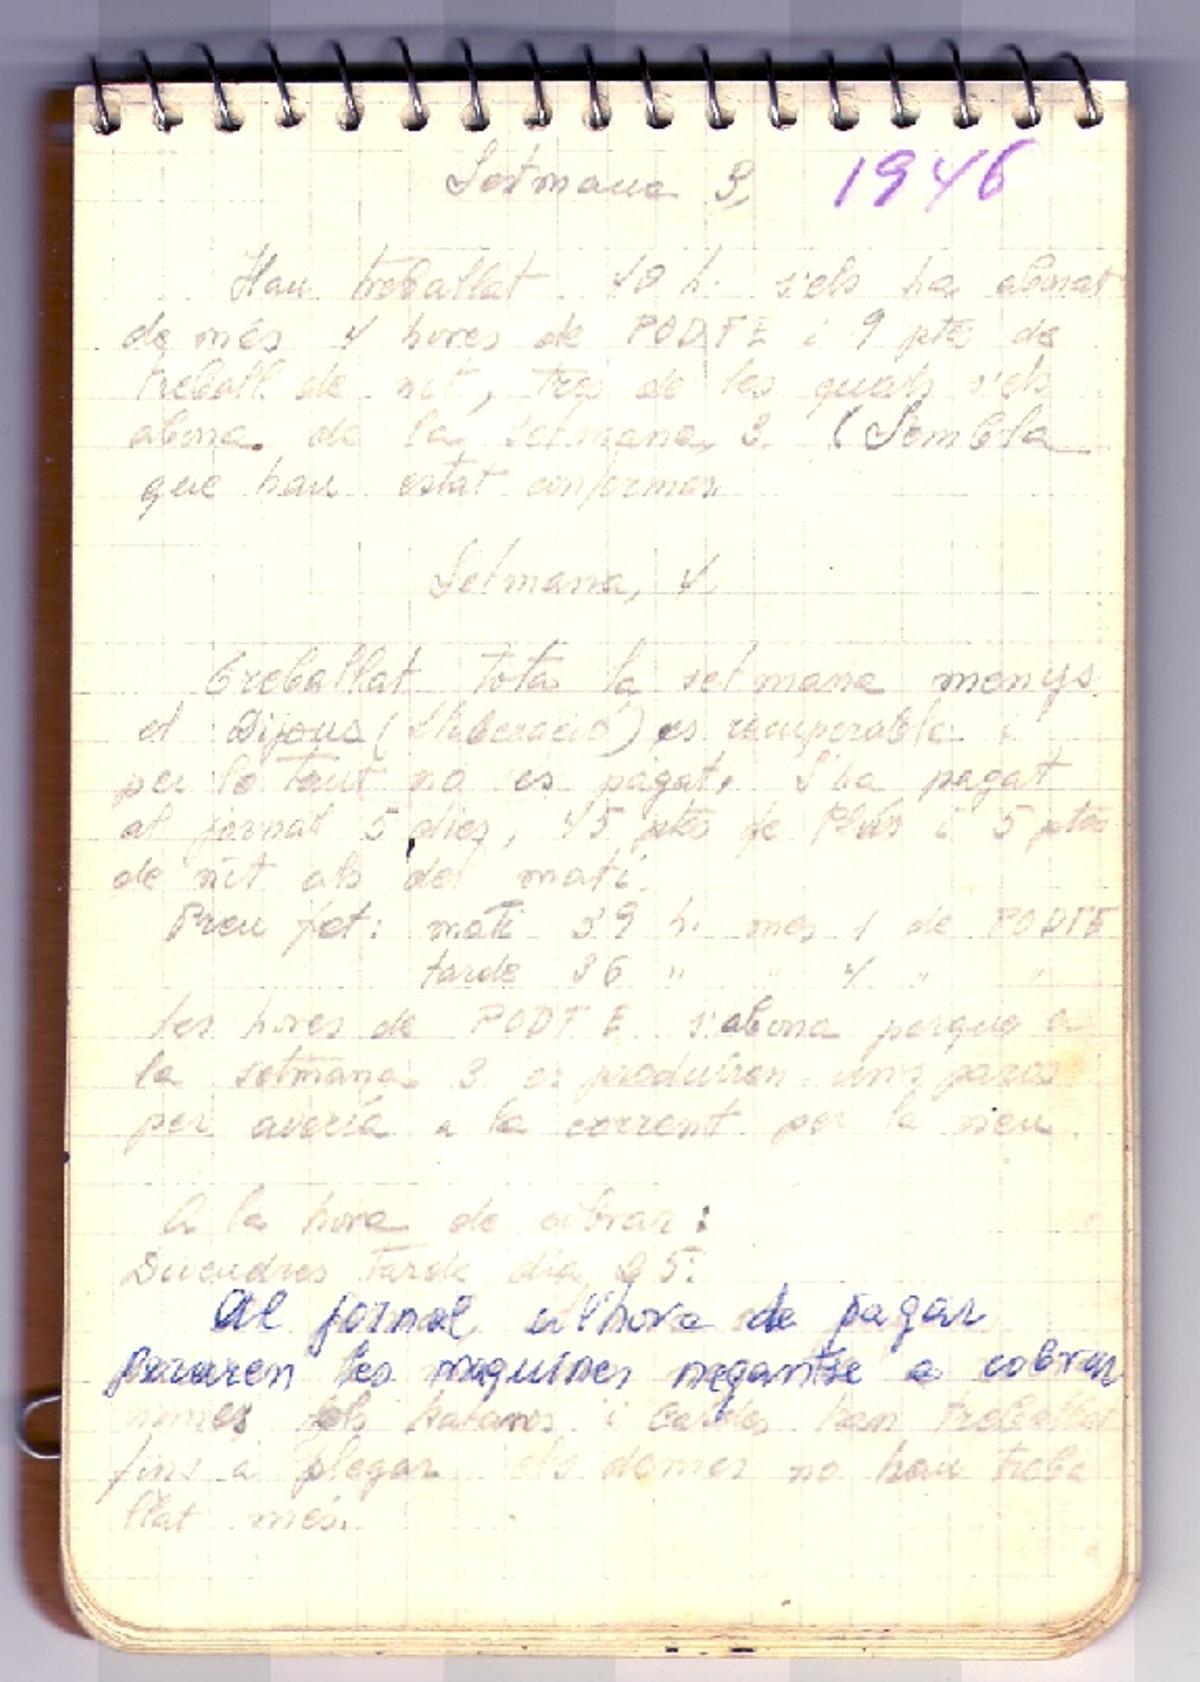 Setmana 3, 1946
Han treballat 40 h. s'els ha abonat
de més 4 hores de PODTE i 9 ptes de
treball de nit, tres de les quals s'els
abona de la setmana 3. (Sembla
que han estat conformes
Setmana, 4
Treballat tota la setmana menys
el Dijous (Lliberació) es recuperable i
per lo tant no es pagat. S'ha pagat
al jornal 5 dies, 45 ptes de Plus i 5 ptes
de nit als del matí.
Preu fet: matí 39 h. mes 1 de PODTE
tarde 36 " " 4 " "
Les hores de PODTE s'abona perque a
la setmana 3 es produiren uns paros
per averia a la corrent per la neu.
A la hora de cobrar:
Divendres tarde dia 25:
Al jornal a l'hora de pagar
pararen les maquines negantse a cobrar
nomes els batans i cardes han treballat
fins a plegar els demes no han treba
llat més.